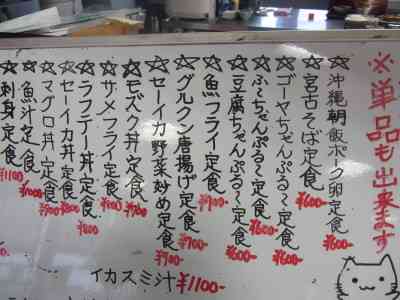 ※単品も出来ます
☆沖縄朝飯ポーク卵定食 ¥600-
☆宮古そば定食 ¥600-
☆ゴーヤちゃんぷる〜定食 ¥600-
☆ふ〜ちゃんぷる〜定食 ¥600-
☆豆腐ちゃんぷる〜定食 ¥600-
☆魚フライ定食 ¥700-
☆グルクン唐揚げ定食 ¥700-
☆セーイカ野菜炒め定食 ¥700-
☆モズク丼定食 ¥700-
☆サメフライ定食
☆ラフテー丼定食 ¥800
☆セーイカ丼定食 ¥800
☆マグロ丼定食 ¥900
☆魚汁定食 ¥1000
☆刺身定食 ¥1100
イカスミ汁 ¥1100-